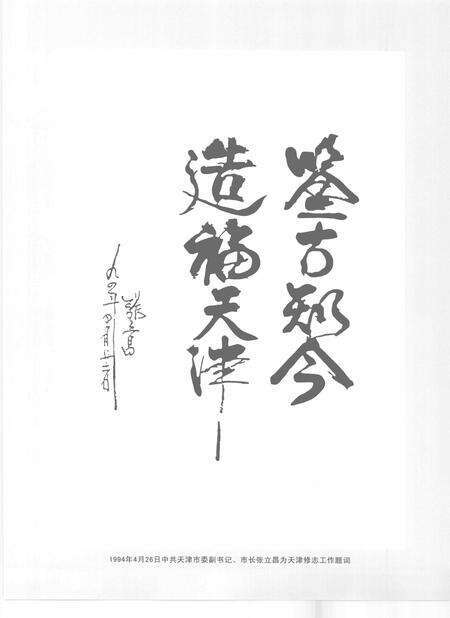 鉴古知今
造福天津
张立昌
九四年四月廿六日
1994年4月26日中共天津市委副书记、市长张立昌为天津修志工作题词